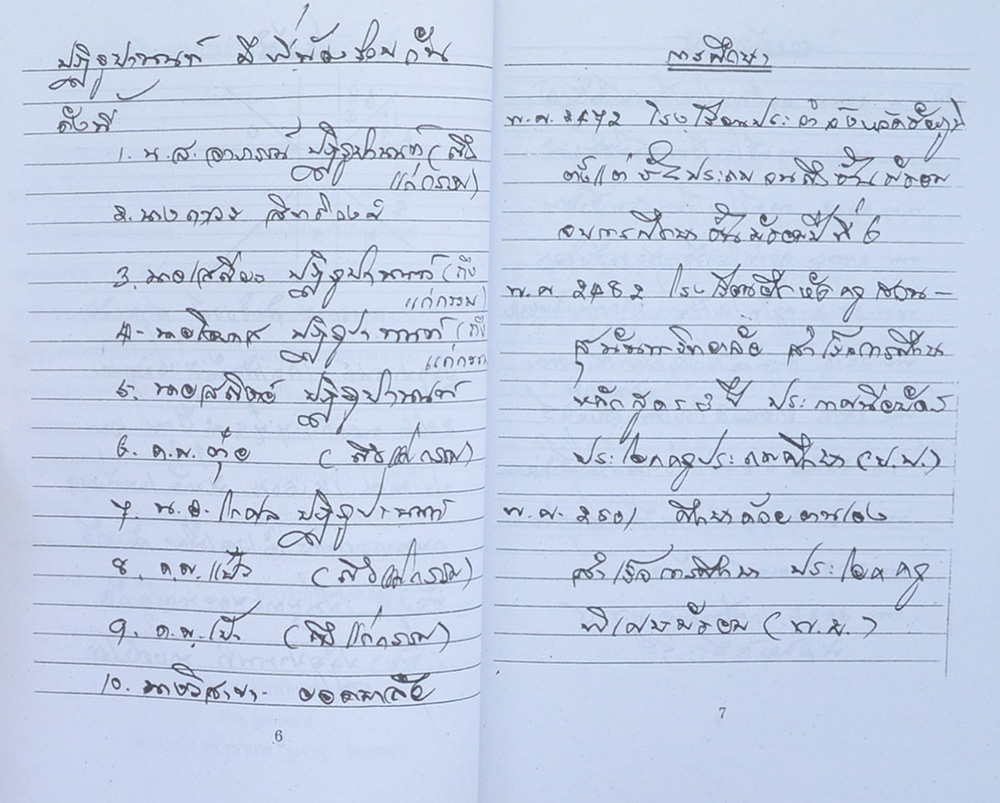 ปฏิรูปานนท์ มีพี่น้องร่วมกัน
ดังนี้
1. น.ส. อาภรณ์ ปฏิรูปานนท์ (ถึง
แก่กรรม)
2. นางดวง
3. นายเสถียร ปฏิรูปานนท์ (ถึง
แก่กรรม)
4. นาย ปฏิรูปานนท์ (ถึง
แก่กรรม
5. นายสถิตย์ ปฏิรูปานนท์
6. ด.ช. ตุ๋ย (ถึงแก่กรรม)
7. ปฏิรูปานนท์
8. (ถึงแก่กรรม)
9. (ถึงแก่กรรม)
10. นางวิสาขา
6
การศึกษา
พ.ศ. 2472 โรงเรียนประจำจังหวัด
ตั้งแต่ชั้นประถมจนถึงชั้นมัธยม
จบการศึกษาชั้นมัธยมปีที่ 6
พ.ศ. 2482 โรงเรียนฝึกหัดครูสวน-
สุนันทาวิทยาลัย สำเร็จการศึกษา
หลักสูตร ปี ประกาศนียบัตร
ประโยคครูประถมศึกษา (ป.ป.)
พ.ศ. 2501 ศึกษาด้วยตนเอง
สำเร็จการศึกษา ประโยคครู
พิเศษมัธยม (พ.ม.)
7